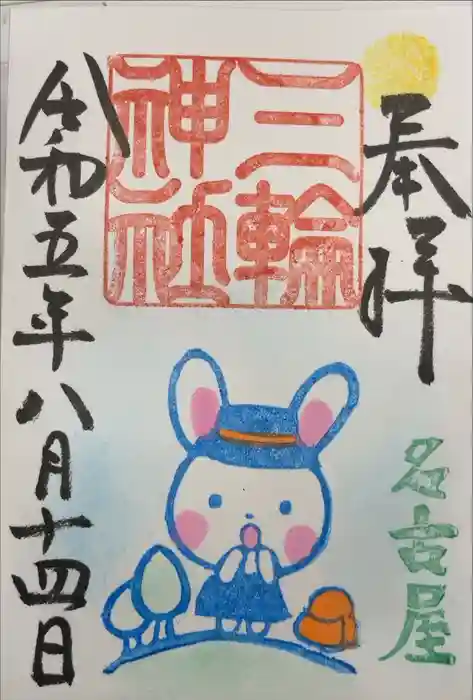 奉拝
三輪
神社
名古屋
令和五年八月十四日